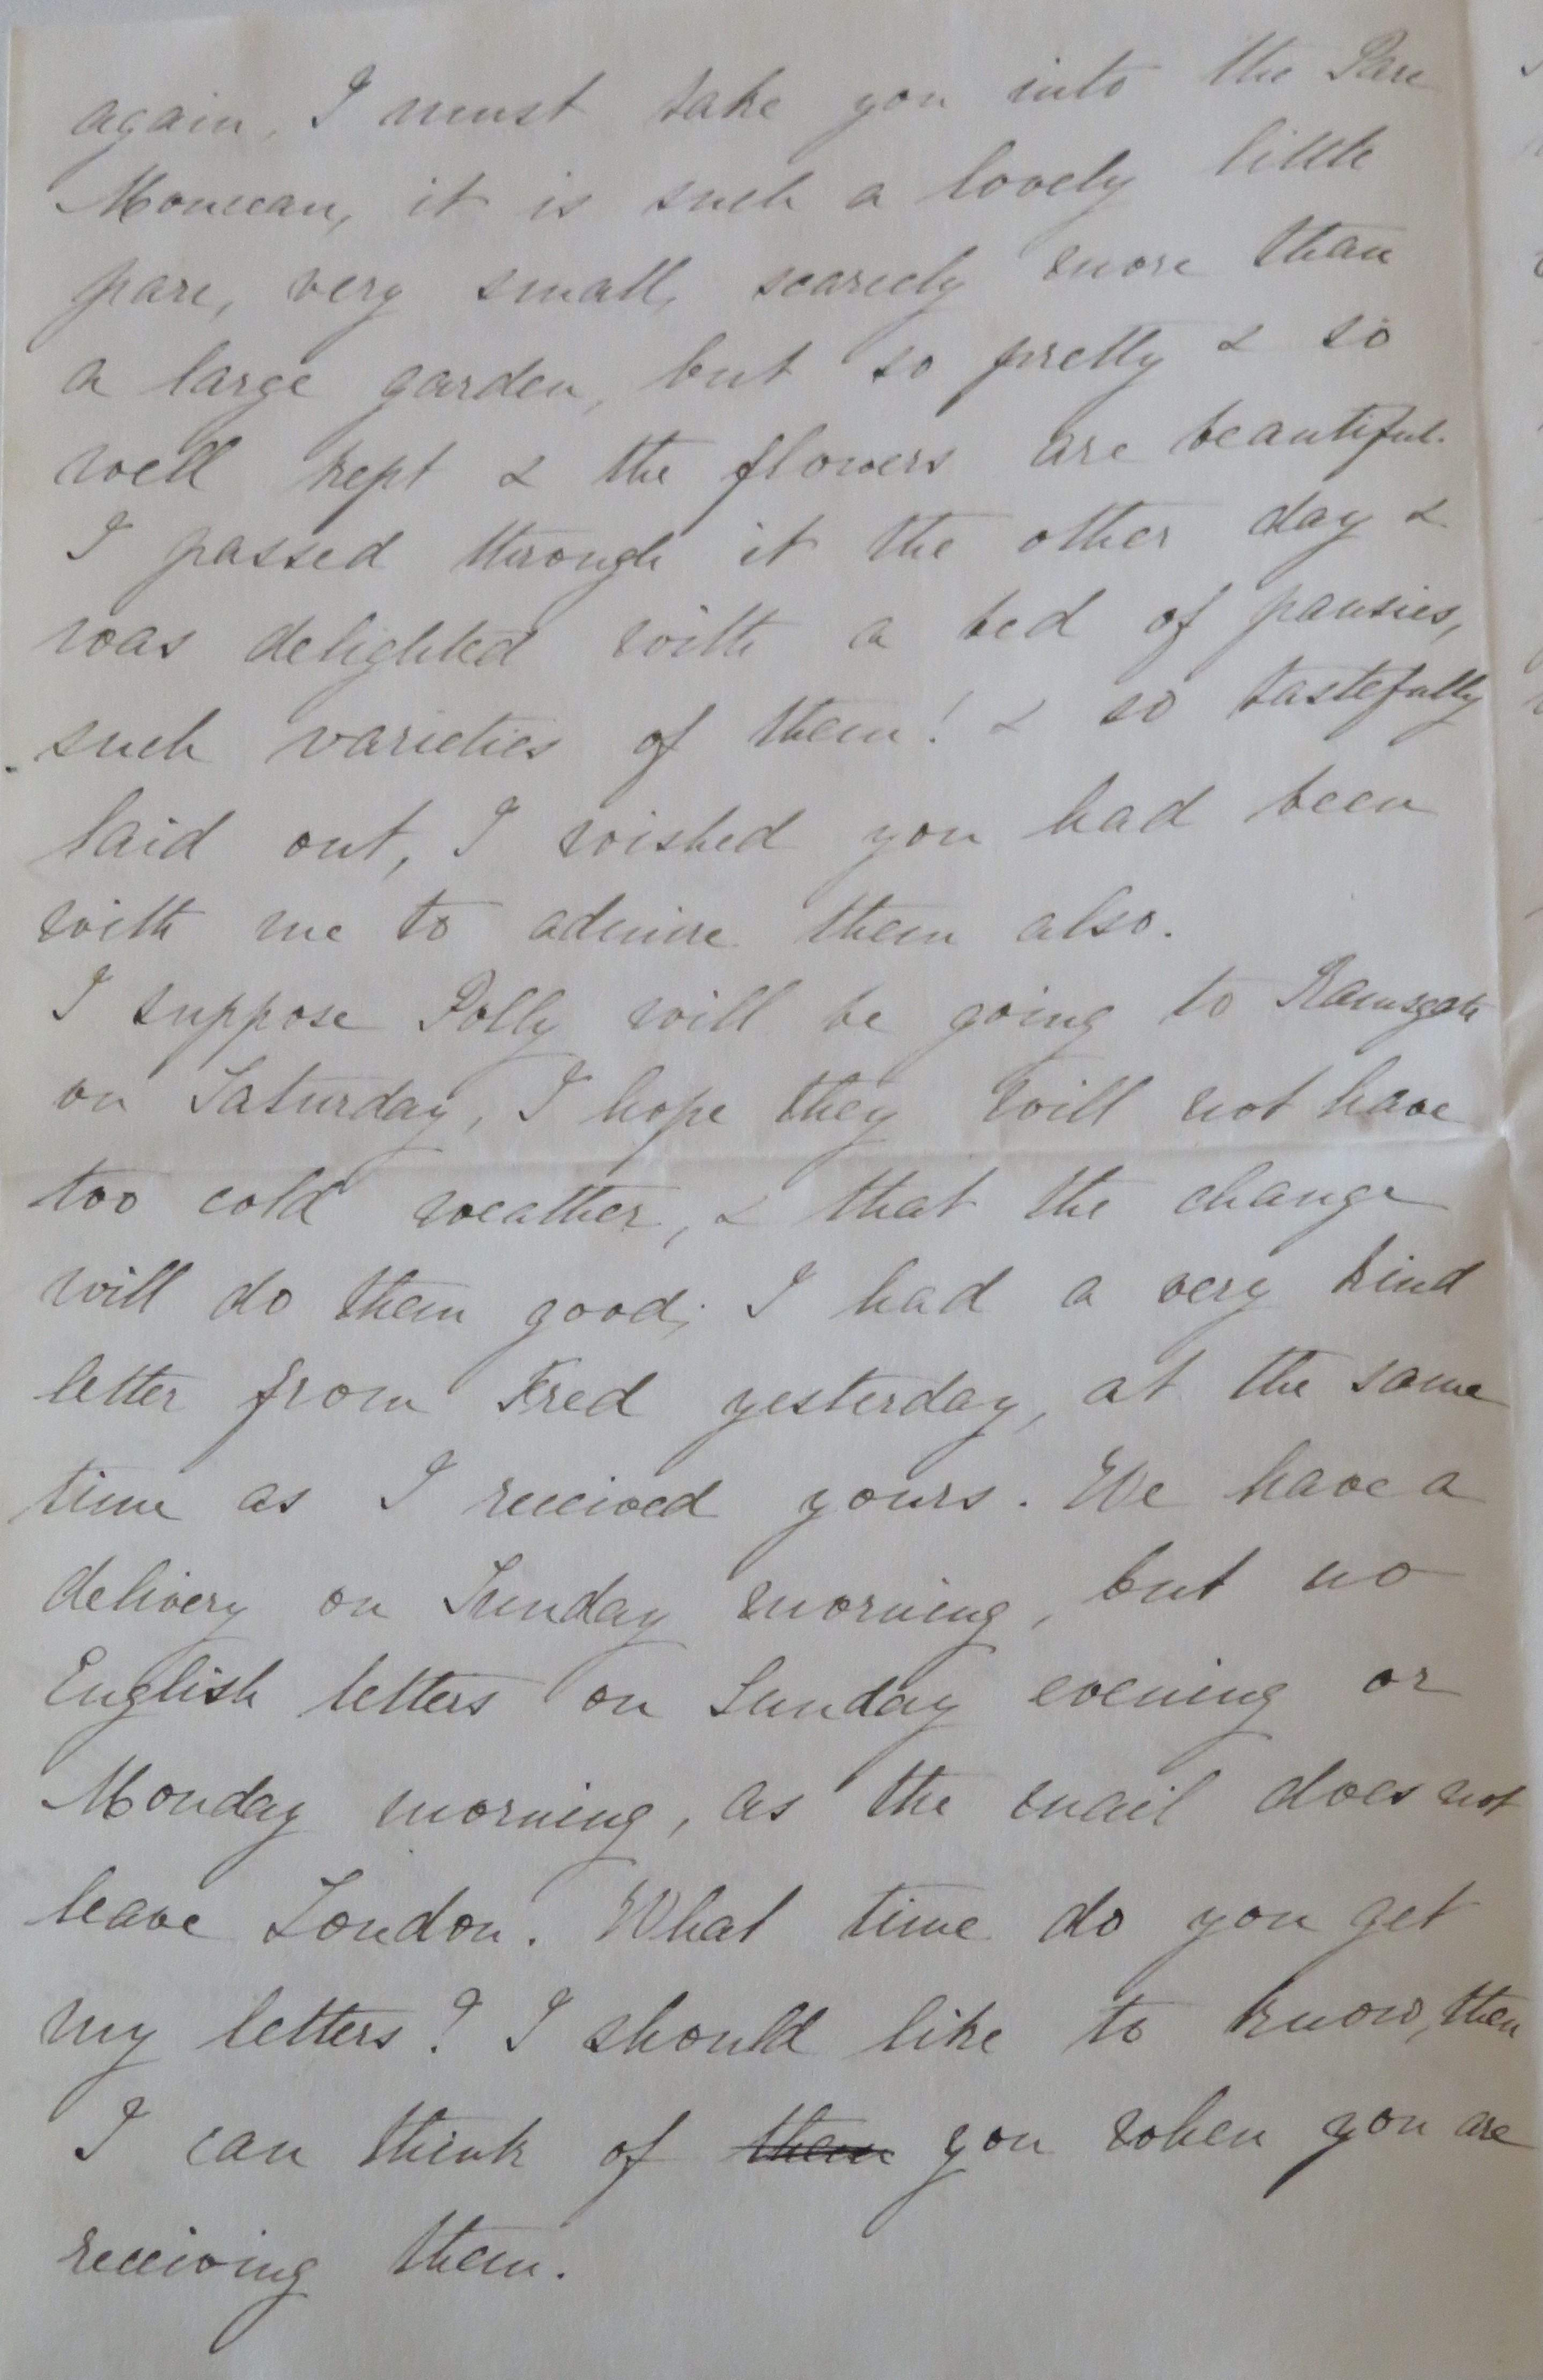 again, I must take you into the Parc
Monceau, it is such a lovely little
parc, very small, scarcely more than
a large garden, but so pretty & so
well kept & the flowers are beautiful.
I passed through it the other day &
was delighted with a bed of pansies,
such varieties of them! & so tastefully
laid out, I wished you had been
with me to admire them also.
I suppose Polly will be going to Ramsgate
on Saturday, I hope they will not have
too cold weather, & that the change
will do them good; I had a very kind
letter from Fred yesterday, at the same
time as I received yours. We have a
delivery on Sunday morning, but no
English letters on Sunday evening or
Monday morning, as the mail does not
leave London. What time do you get
my letters? I should like to know, then
I can think of them you when you are
receiving them.